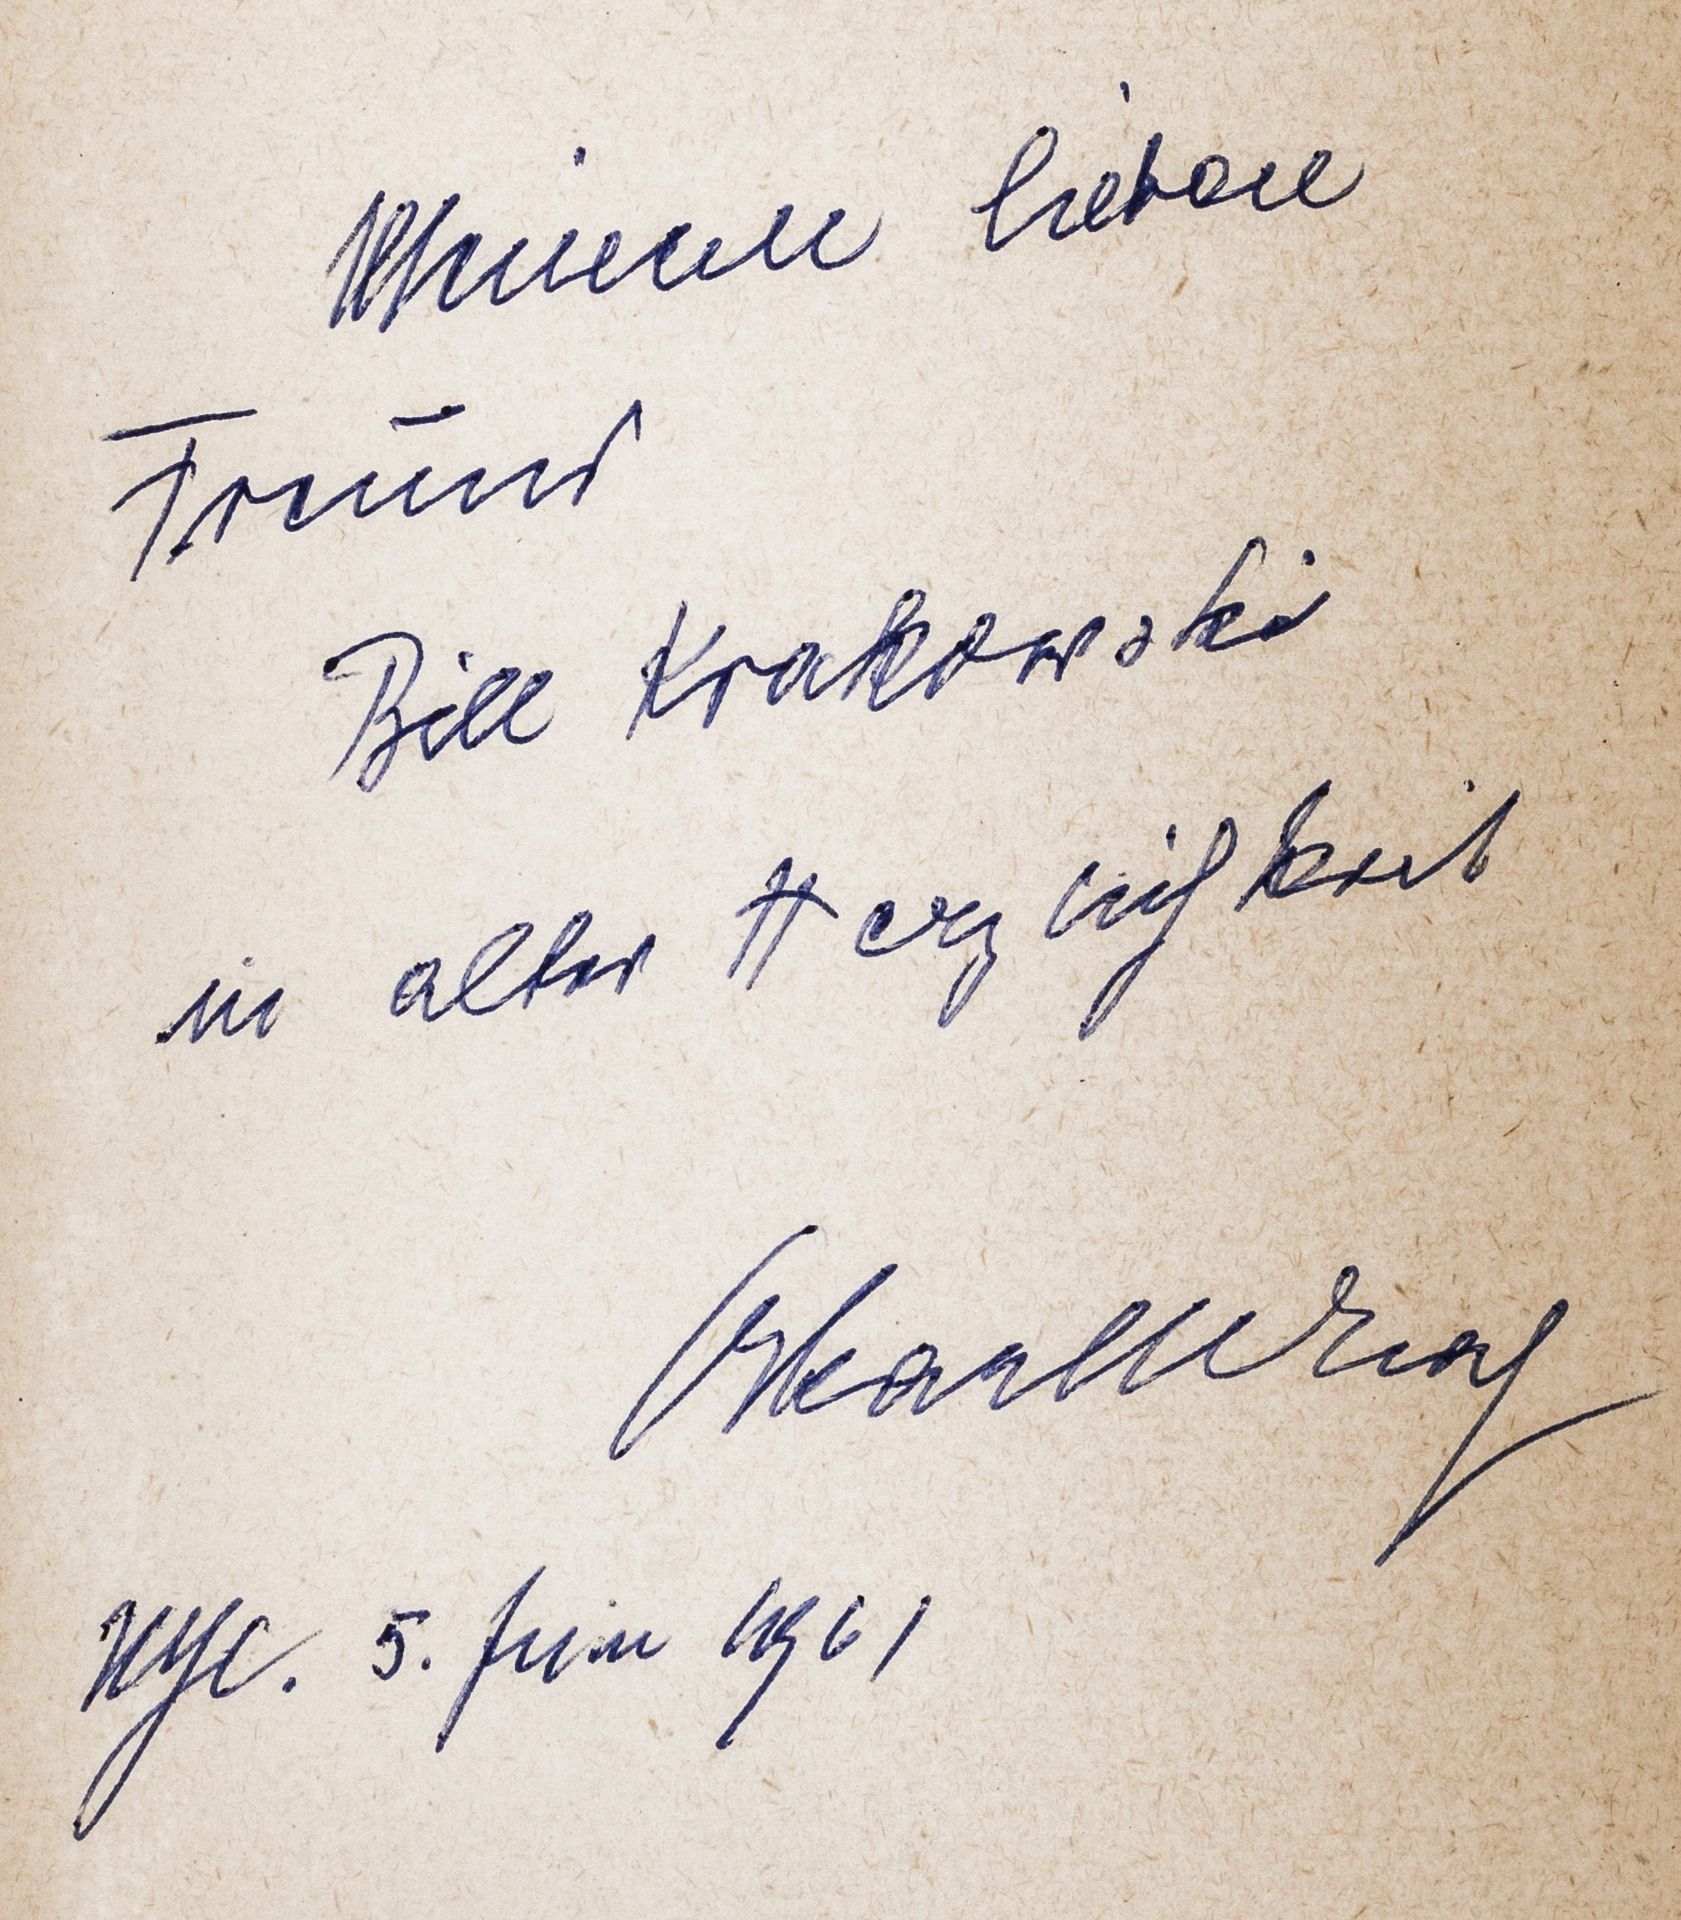 Meinem lieben
Freund
Bill Krakowski
in alter Herzlichkeit
Oskar Maria Graf
NYC. 5. Juni 1961